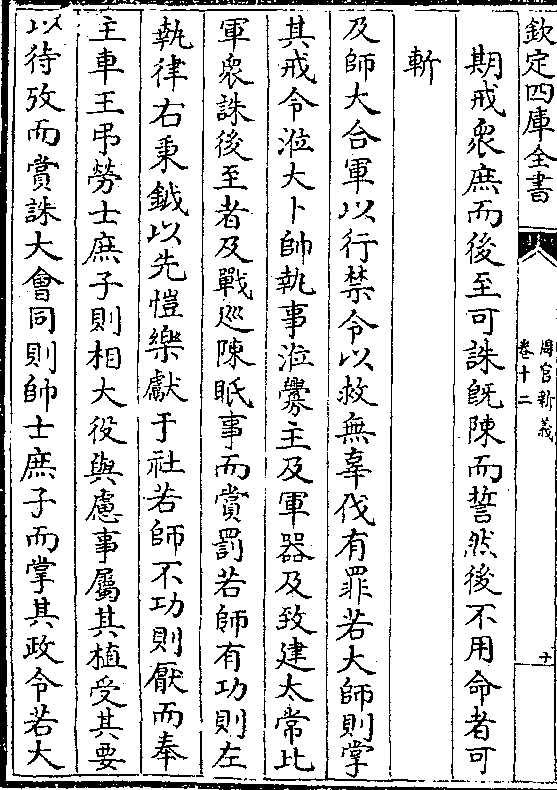 欽定四庫全書
周官新義
卷十二
十
期戒衆庶而後至可誅旣陳而誓然後不用命者可
斬
及師大合軍以行禁令以救無辜伐有罪若大師則掌
其戒令涖大卜帥執事涖釁主及軍器及致建太常比
軍衆誅後至者及戰巡陳眡事而賞罰若師有功則左
執律右秉鉞以先愷樂獻于社若師不功則厭而奉
主車王弔勞士庶子則相大役與慮事屬其植受其要
以待攷而賞誅大會同則帥士庶子而掌其政令若大